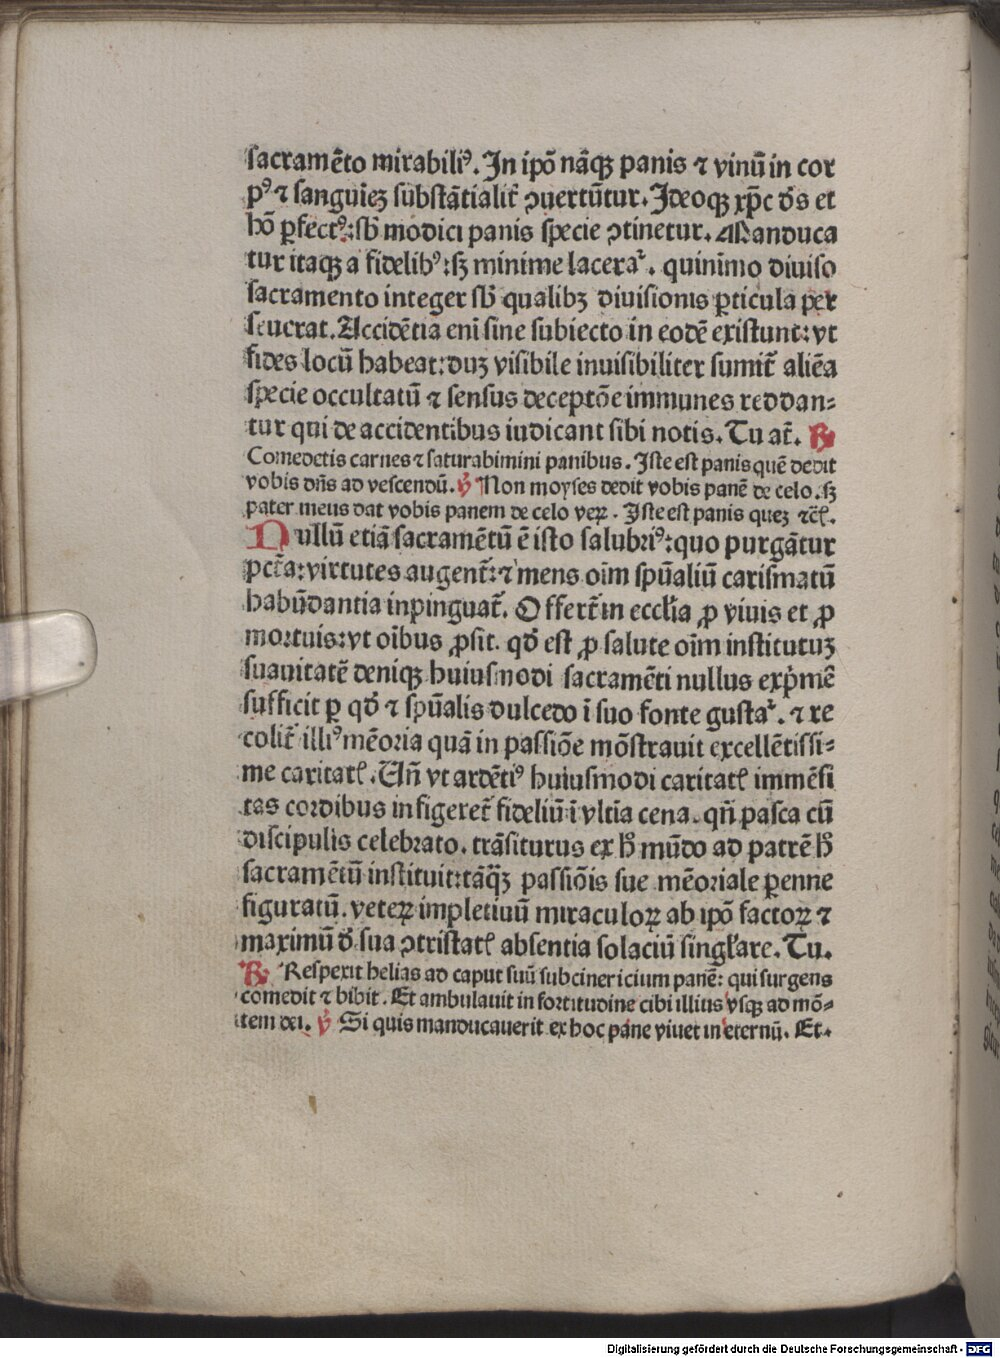 sacramēto mirabiliꝰ. In ipō nāqꝫ panis ⁊ vinū in cor
pꝰ ⁊ sanguīeꝫ substātialit̄ ꝯuertūtur. Ideoqꝫ xp̄c d̄s et
hō ꝑfectꝰ: sb̄ modici panis specie ꝯtinetur. Manduca
tur itaqꝫ a fidelibꝰ: sꝫ minime laceraᷣ. quinimo diuiso
sacramento integer sb̄ qualibꝫ diuisionis ꝑticula per
seuerat. Accidētia eni sine subiecto in eodē existunt: vt
fides locū habeat: duꝫ visibile inuisibiliter sumit̄ aliēa
specie occultatū ⁊ sensus deceptōe immunes reddan⸗
tur qui de accidentibus iudicant sibi notis. Tu at̄. ℟
Comedetis carnes ⁊ saturabimini panibus. Iste est panis quē dedit
vobis dn̄s ad vescendū. ℣ Non moyses dedit vobis panē de celo. sꝫ
pater meus dat vobis panem de celo veꝝ. Iste est panis queꝫ ⁊cꝭ.
Nullū etiā sacramētū ē isto salubriꝰ: quo purgātur
pctā: virtutes augent̄: ⁊ mens oīm spūaliū carismatū
habūdantia inpinguat̄. Offert̄ in eccl̄ia ꝓ viuis et ꝓ
mortuis: vt oībus ꝓsit. qd̄ est ꝓ salute oīm institutuꝫ
suauitatē deniqꝫ huiusmodi sacramēti nullus expͥmē
sufficit ꝑ qd̄ ⁊ spūalis dulcedo ī suo fonte gustaᷣ. ⁊ re
colit̄ illiꝰ mēoria quā in passiōe mōstrauit excellētissi⸗
me caritatꝭ. Un̄ vt ardētiꝰ huiusmodi caritatꝭ immēsi
tas cordibus infigeret̄ fideliū ī vltīa cena. qn̄ pasca cū
discipulis celebrato. trāsiturus ex h̄ mūdo ad patrē h̄
sacramētū instituit: tāqꝫ passiōis sue mēoriale ꝑenne
figuratū. veteꝝ impletiuū miraculoꝝ ab ipō factoꝝ ⁊
maximū d̄ sua ꝯtristatꝭ absentia solaciū singl̄are. Tu.
℟ Respexit helias ad caput suū subcinericium panē: qui surgens
comedit ⁊ bibit. Et ambulauit in fortitudine cibi illius vsqꝫ ad mō⸗
tem dei. ℣ Si quis manducauerit ex hoc pane viuet in eternū. Et.
Digitalisierung gefördert durch die Deutsche Forschungsgemeinschaft - DFG